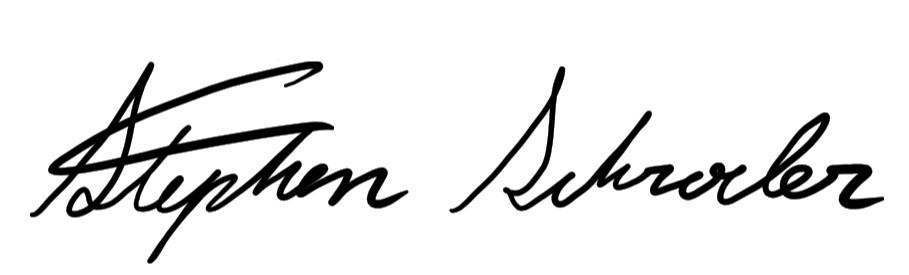 Stephen Schroder